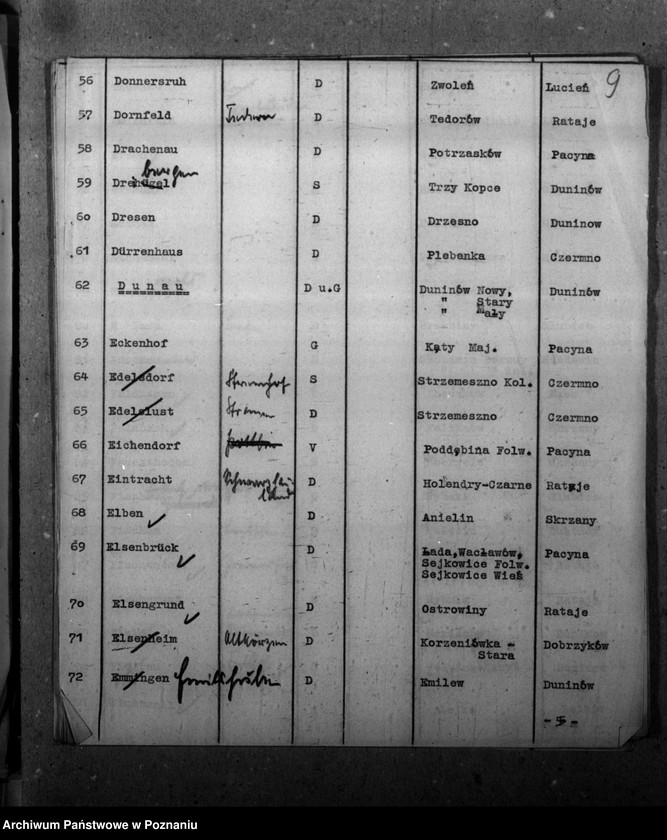 9
56 Donnersruh D Zwoleń Lucień
57 Dornfeld D Tedorów Rataje
58 Drachenau D Potrzasków Pacyna
bergen
59 Dreihügel S Trzy Kopce Duninów
60 Dresen D Drzesno Duninow
61 Dürrenhaus D Plebanka Czermno
62 Dunau D u.G Duninów Nowy, Duninów
" Stary
" Mały
63 Eckenhof G Kąty Maj. Pacyna
64 Edelsdorf S Strzemeszno Kol. Czermno
65 Edelslust D Strzemeszno Czermno
66 Eichendorf V Poddębina Folw. Pacyna
67 Eintracht D Holendry-Czarne Rataje
68 Elben D Anielin Skrzany
69 Elsenbrück D Łada,Wacławów, Pacyna
Sejkowice Folw.
Sejkowice Wieś
70 Elsengrund D Ostrowiny Rataje
71 Elsenheim Altkörzen D Korzeniówka - Dobrzyków
Stara
72 Emmingen D Emilew Duninów
- 5 -
Archiwum Państwowe w Poznaniu